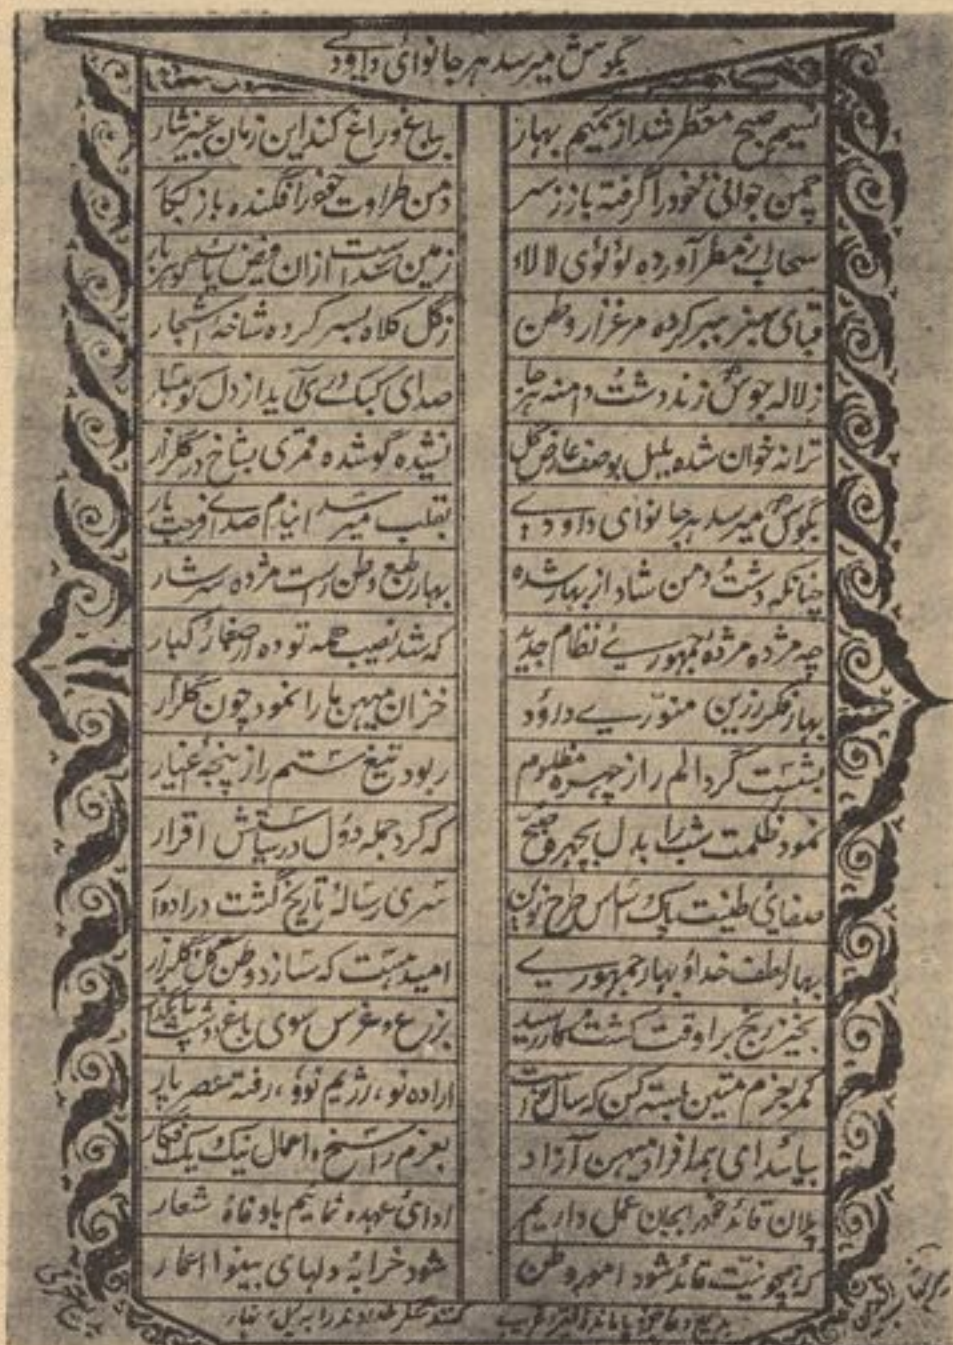 بگوش میرسد هر جا نوای داودے
نسیم صبح معطر شد از شمیم بهار بباغ و راغ کند این زمان عبیر نثار
چمن جوانی خود را گرفته باز ز سر دمن طراوت خود را فگنده باز بکار
سحاب از مطر آورده لؤلؤی لالاء زمین شد است ازان فیض یاب گوهر بار
قبای سبز ببر کرده مرغزار وطن ز گل کلاه بسر کرده شاخهٔ اشجار
ز لاله جوش زند دشت و دامنه هر جا صدای کبک دری آید از دل کوهسار
ترانه خوان شده بلبل بوصف عارض گل نشیده گوشده قمری بشاخ در گلزار
بگوش میرسد هر جا نوای داودے بقلب میرسد انیام صدای فرحت بار
چنانکه دشت و دمن شاد از بهار شده بهار طبع وطن راست مژده سرشار
چه مژده مژدهٔ جمهوریے نظام جدید که شد نصیب همه توده از صغار کبار
بهار فکر رزین منوّریے داؤد خزان میهن ما را نمود چون گلزار
بشست گرد الم را ز چهره مظلوم ربود تیغ ستم را ز پنجهٔ غدار
نمود ظلمت شب را بدل بچهره صبح که کرد جمله دول در سیاستش اقرار
صفائی طینت پاک اساس طرح نوین سری رساله تاریخ گشت در ادوار
بهار لطف خدا و بهار جمهوریے امید هست که سازد وطن گل گلزار
بخیز رنج برا وقت کشت کار رسید بزرع و غرس سوی باغ و دشت
کمر بعزم متین بسته کن که سال نو است اراده نو، رژیم نو و، رفته عصر پار
بیائید ای همه افراد میهن آزاد بعزم راسخ و اعمال نیک یک
پلان قائد خود بجان عمل داریم ادائ عهده نمائیم با وفاهٔ شعار
که همچو نیت قائد شود امور وطن شود خرابهٔ دلهای بینوا اعمار
کنند شکر خداوند را به لیل و نهار